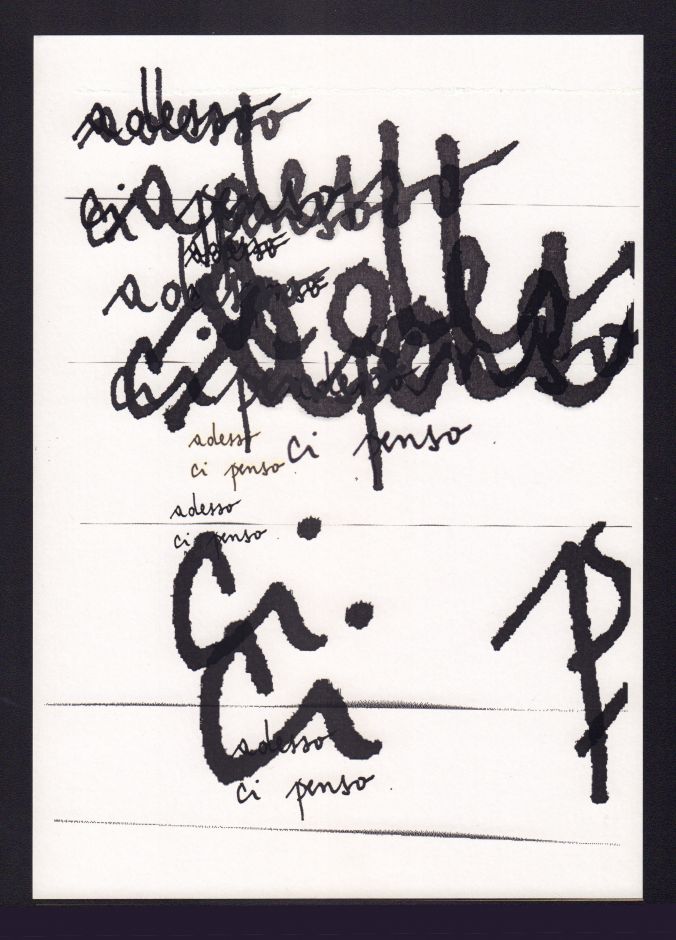 adesso
ci penso
adesso
adesso
ci penso
adesso
ci penso
ci penso
adesso
ci penso
ci p
ci
adesso
ci penso